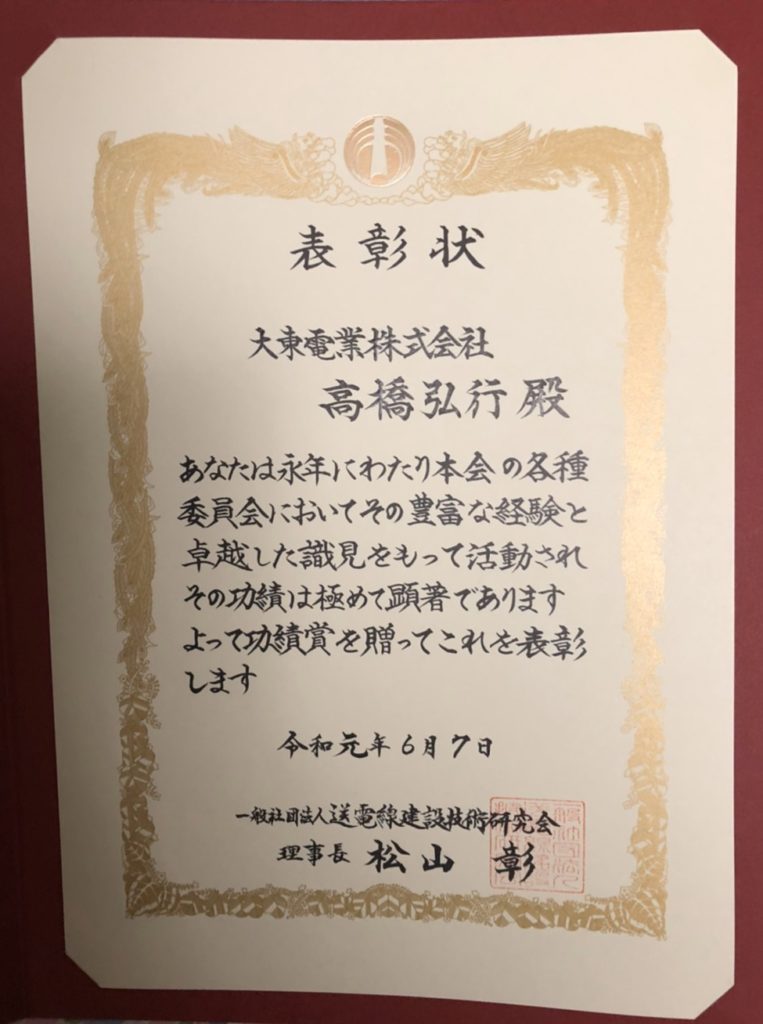 表彰状
大東電業株式会社
高橋弘行殿
あなたは永年にわたり本会の各種
委員会においてその豊富な経験と
卓越した識見をもって活動され
その功績は極めて顕著であります
よって功績賞を贈ってこれを表彰
します
令和元年6月7日
一般社団法人送電線建設技術研究会
理事長 松山 彰